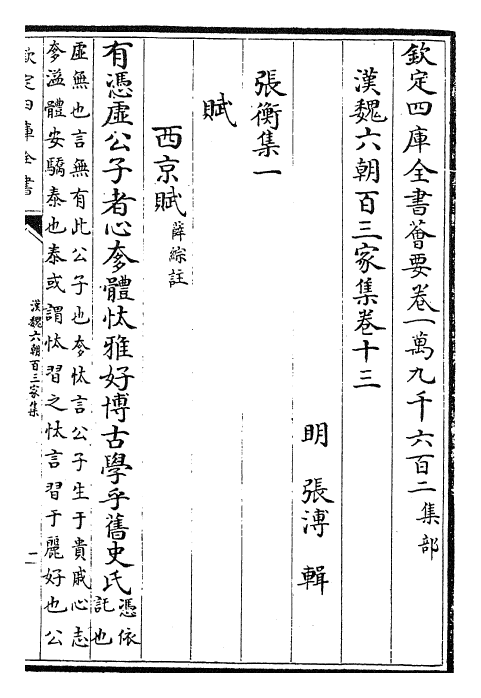 欽定四庫全書薈要卷一萬九千六百二集部
漢魏六朝百三家集卷十三
明張溥輯
張衡集一
賦
西京賦薛綜註
有憑虛公子者心奓體忲雅好博古學乎舊史氏憑依
託也
虛無也言無有此公子也奓忲言公子生于貴戚心志
奓溢體安驕泰也泰或謂忲習之忲言習于麗好也公
欽定四庫全書
漢魏六朝百三家集
一